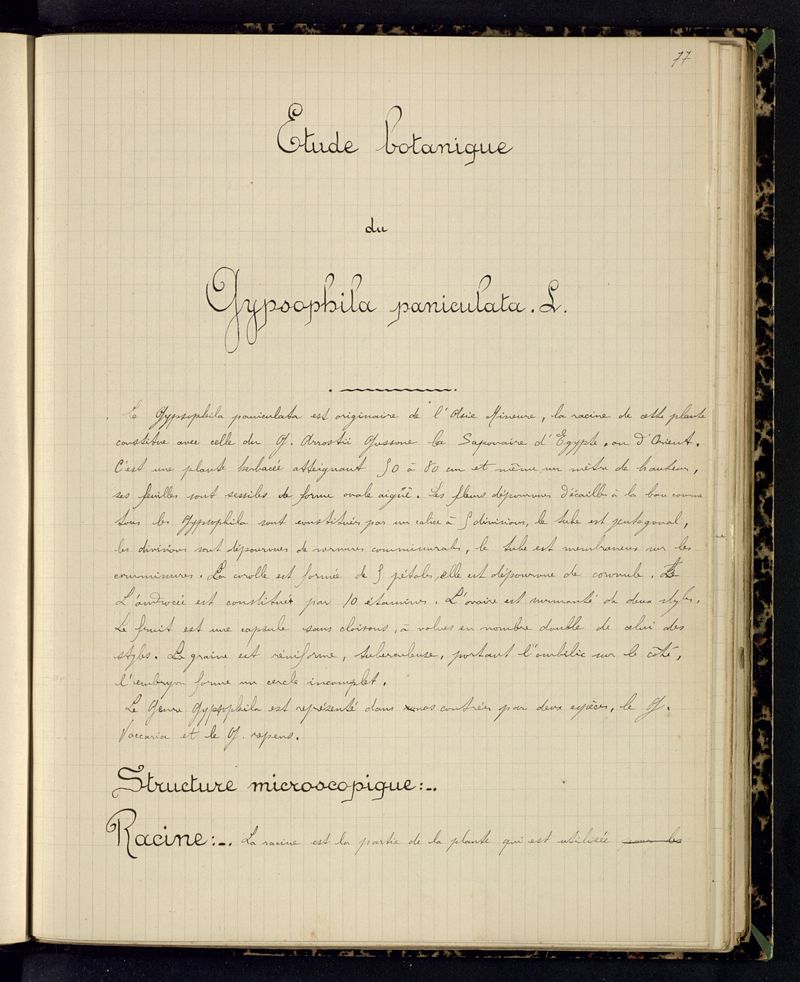 77
Etude botanique
du
Gypsophila paniculata. L.
Le Gypsophila paniculata est originaire de l'Asie Mineure, la racine de cette plante
constitue avec celle du G. Arrostii Gussone la Saponaire d'Egypte, ou d'Orient.
C'est une plante herbacée atteignant 50 à 80 cm et même un mètre de hauteur,
ses feuilles sont sessiles de forme ovale aigüe. Les fleurs dépourvues d'écailles à la base comme
tous les Gypsophila sont constituées par un calice à 5 divisions, le tube est pentagonal,
les divisions sont dépourvues de nervures commissurales, le tube est membraneux sur les
commissures. La corolle est formée de 5 pétales, elle est dépourvue de coronule. Le
L'androcée est constitué par 10 étamines. L'ovaire est surmonté de deux styles.
Le fruit est une capsule sans cloisons, à valves en nombre double de celui des
styles. La graine est réniforme, tuberculeuse, portant l'ombilic sur le côté,
l'embryon forme un cercle incomplet.
Le Genre Gypsophila est représenté dans nos contrées par deux espèces, le G.
Vaccaria et le G. repens.
Structure microscopique:-.
Racine:-. La racine est la partie de la plante qui est utilisée pour les